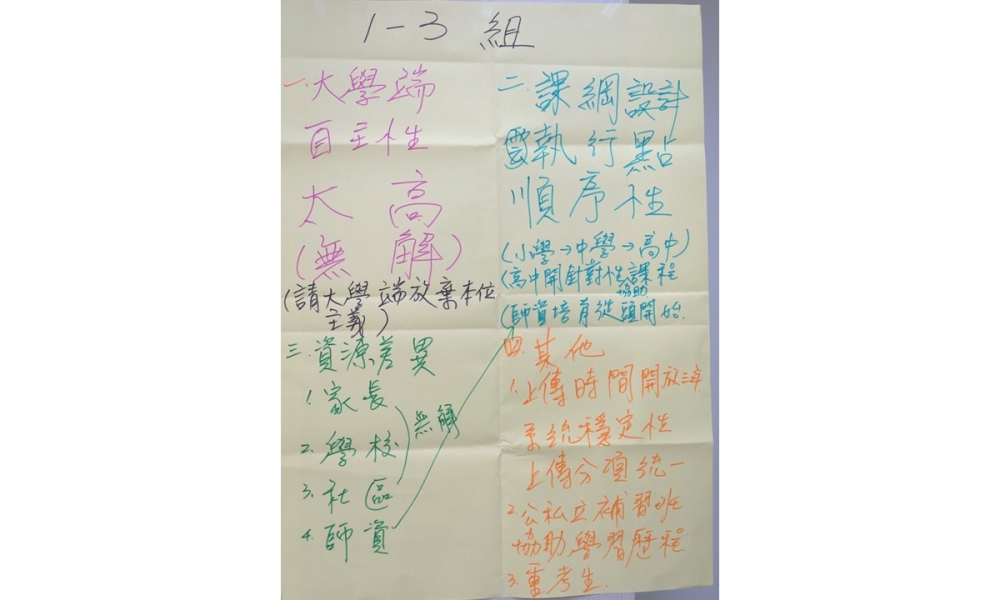 1-3 組
一、大學端
自主性
太高
(無解)
(請大學端放棄本位
主義)
二、課綱設計
需執行點
順序性
(小學→中學→高中)
(高中開針對性課程
協助
(師資培育從頭開始.
三、資源差異
1. 家長
2. 學校
3. 社區
無解
4. 師資
四、其他
1. 上傳時間開放三年
系統穩定性
上傳分項統一
2. 公私立補習班
協助學習歷程
3. 重考生.